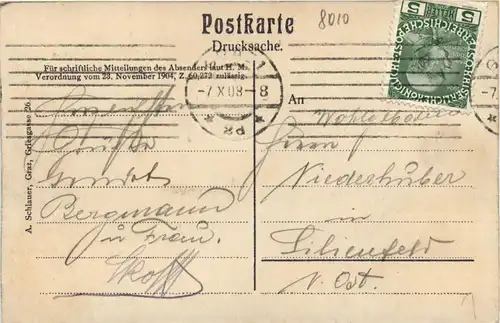 Postkarte
8010
Drucksache.
Für schriftliche Mitteilungen des Absenders laut H. M.
Verordnung vom 23. November 1904, Z. 60.273 zulässig.
GRAZ 1
-7.X.08-8
* 8d *
5 5
KAISERLICHE KÖNIGLICHE ÖSTERREICHISCHE POST
A. Schlauer, Graz, Grießgasse 26.
An
Wohlgeboren
Herrn
Niederhuber
in
Lilienfeld
N. Öst.
Bergmann
u Frau.